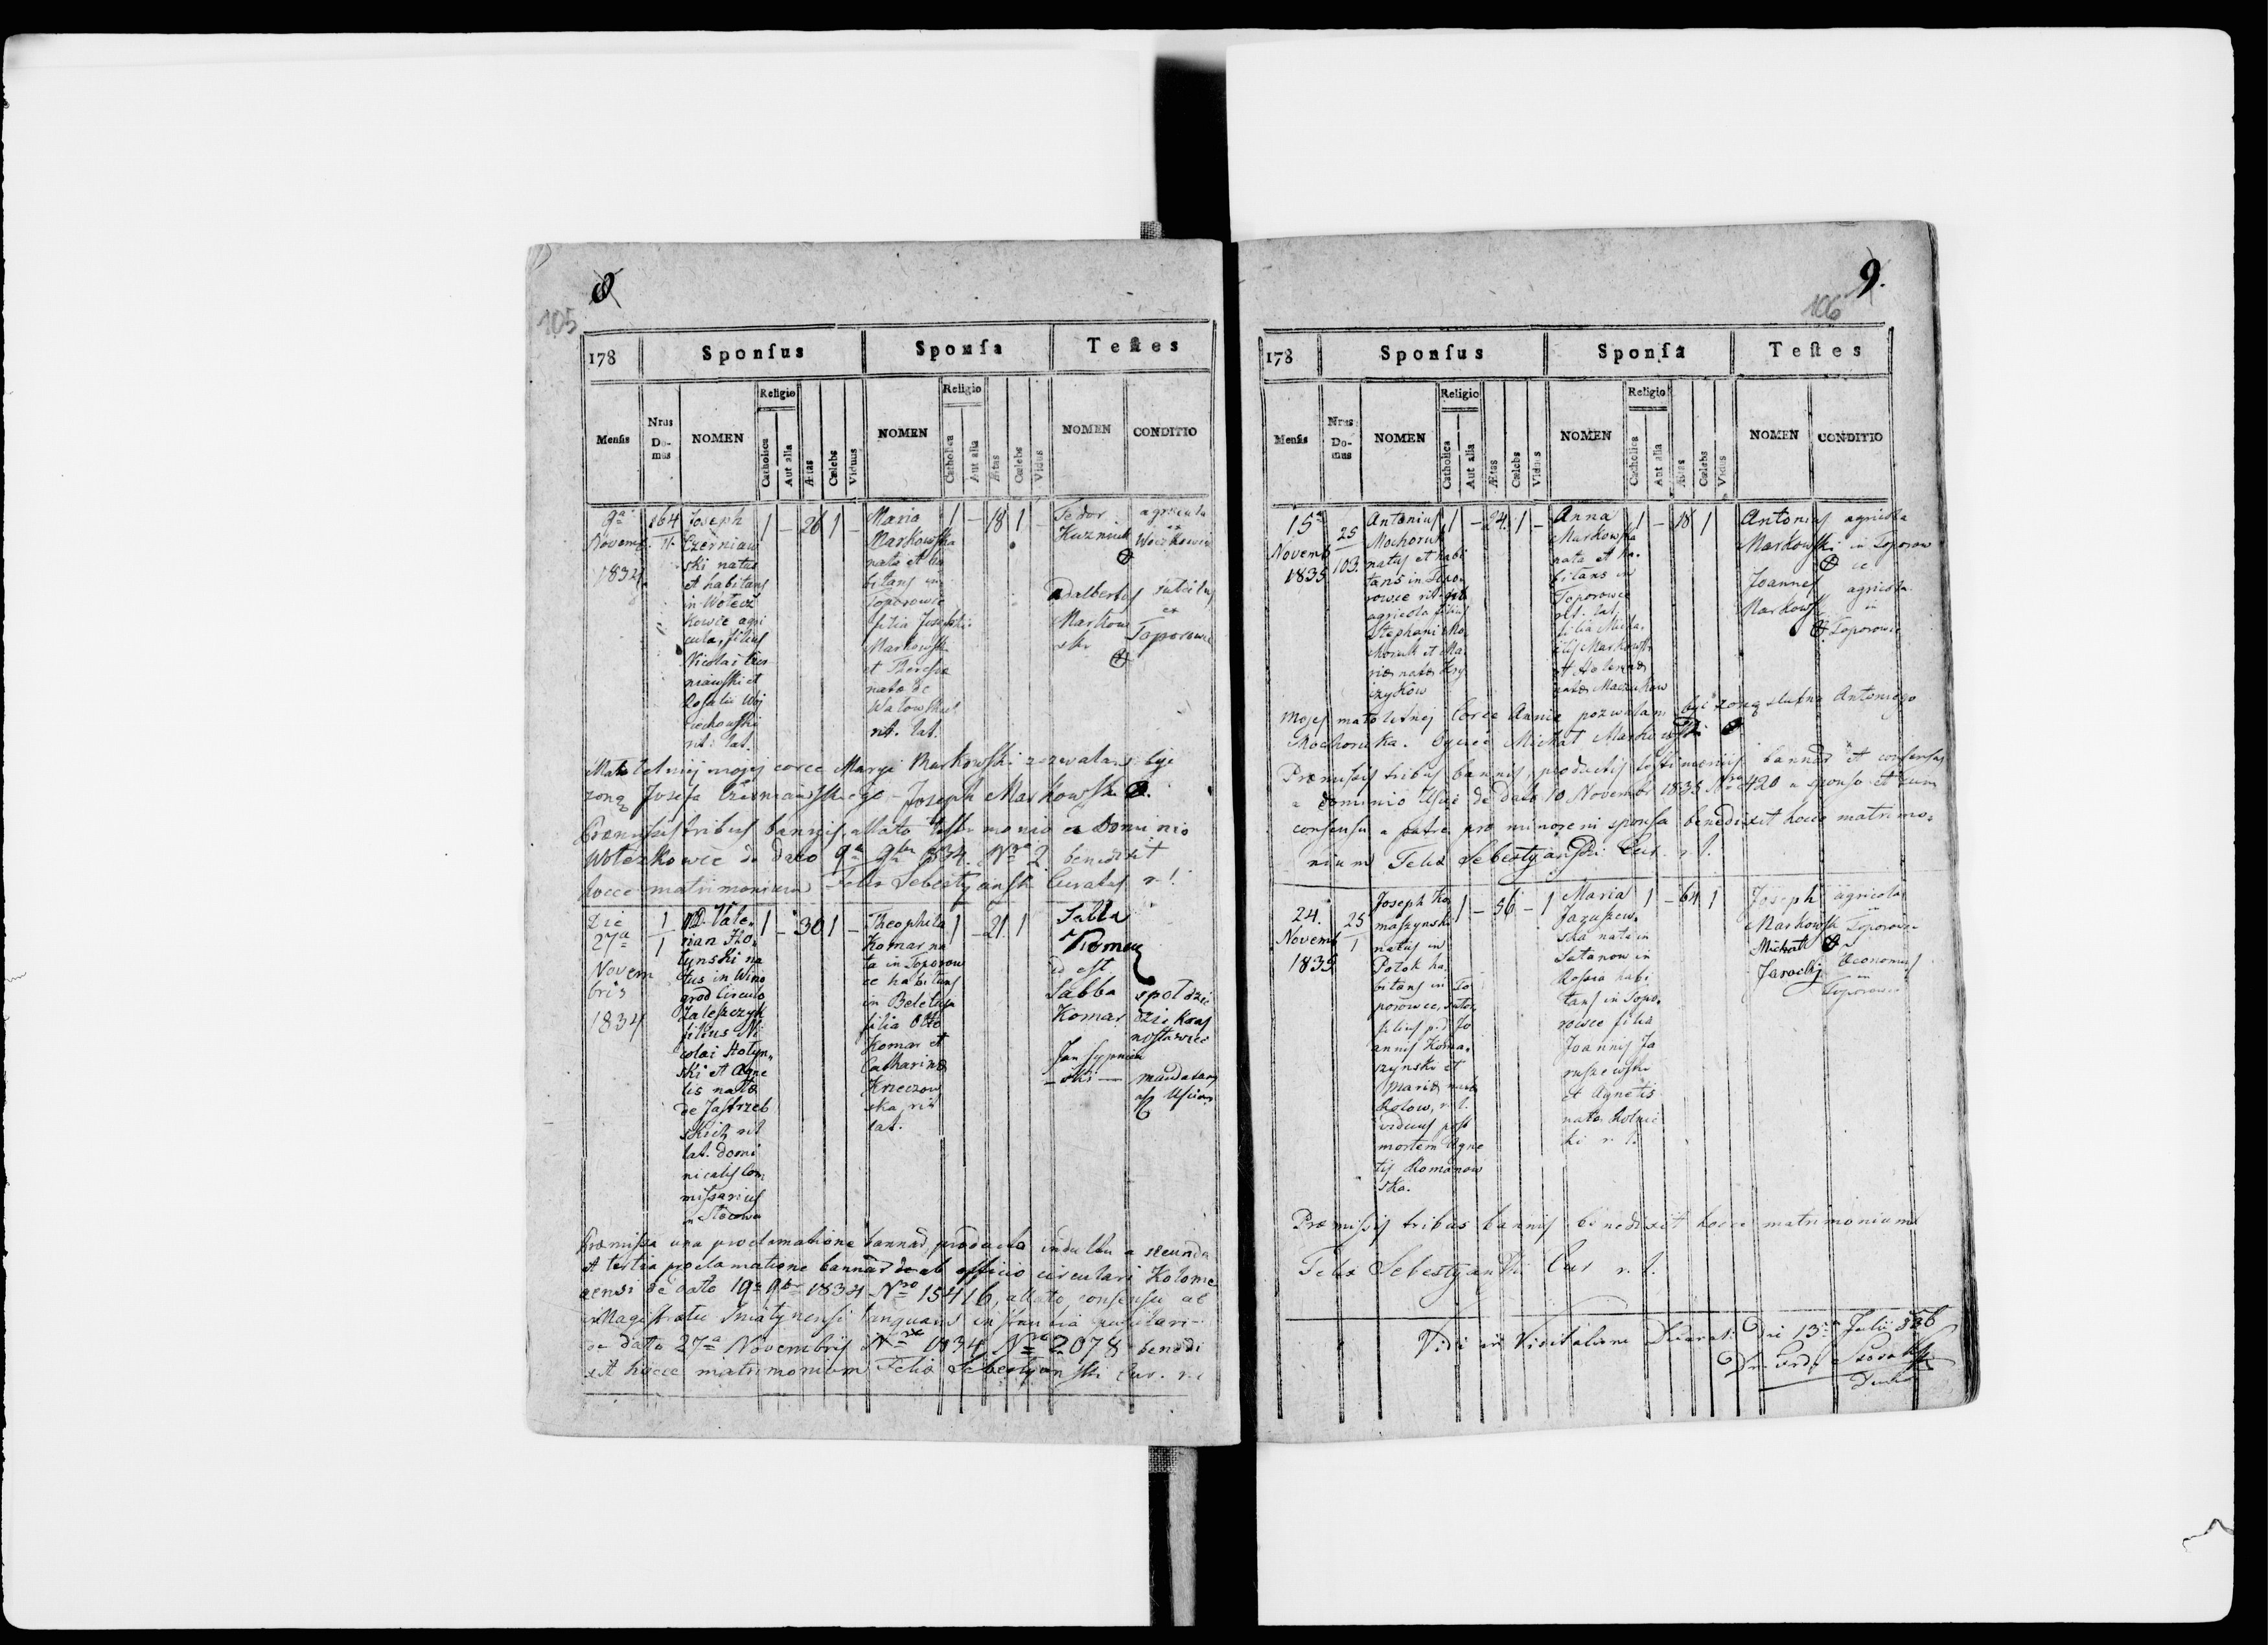 8
105
178 Sponſus Sponſa Teſtes
Menſis Nrus Domus NOMEN Religio Catholica Aut alia Ætas Cælebs Viduus NOMEN Religio Catholica Aut alia Ætas Cælebs Vidua NOMEN CONDITIO
9a
Novemb.
1834
164
Joseph
Czerniaw
ski natus
et habitans
in Wołcz
kowce agri
cola, filius
Nicolai Czer
niawski et
Rosalia Woj
ciechowski
rit: lat.
1 - 26 1 -
Maria
Markowska
nata et ha
bitans in
Toporowce
filia Josephi
Markowski
et Theresia
nata de
rit. lat.
1 - 18 1
Fedor agricola
Kuzniuk ex
Wołczkowce
Adalbertus subditus
Markow ex
ski Toporowce
Mało letniej mojej corce Maryi Markowski zezwalam byc
zoną Josefa Czerniawskiego - Joseph Markowski
Præmissis tribus bannis, allato testimonio a Dominio
Wołczkowce de dato 9a 9bri 834. Nro 2 benedixit
hocce matrimonium Felix Sebestyanski Curatus r. l.
Die
27a
Novem
bris
1834
1
1
D. Vale-
rian Ho-
tynski na
tus in Wino
grod Circulo
Zaleszczyk
filius Ni
colai Hotyn-
ski et Agne
tis natæ
de Jastrzeb
skich rit
lat. domi
nicalis Com
missarius
in Stecowa
1 - 30 1 -
Theophila
Komar na
ta in Toporow
ce habitans
in Beleluja
filia Otto
Komar et
Catharinæ
Krzeczow
ska rit
lat.
1 - 21 1
Sabba
Komar
id est
Sabba
Komar
Jan
ski — mandatar
Præmissa una proclamatione bannor, producto indultu a secunda
et tertia proclamatione bannor de ab officio circulari Kolome
aensi de dato 19a 9br 1834 Nro 15416, allato consensu ab
Magistratu Sniatynensi tanquam instantia pupillari
de dato 27a Novembris 1834 Nro 2078 benedi
xit hocce matrimonium Felix Sebestyanski Cur. r. l.
9.
106
178 Sponſus Sponſa Teſtes
Menſis Nrus Domus NOMEN Religio Catholica Aut alia Ætas Cælebs Viduus NOMEN Religio Catholica Aut alia Ætas Cælebs Vidua NOMEN CONDITIO
15a
Novemb
1835
25
103.
Antonius
Mochoruk
natus et habi
tans in Topo-
rowce rit.
agricola filius
Stephani Mo-
choruk et Ma
riæ natæ
1 - 24. 1 -
Anna
Markowska
nata et ha-
bitans in
Toporowce
rit. lat.
filia Micha-
elis Markowski
et
natæ
1 - 18 1
Antonius agricola
Markowski in Toporow
ce
Joannes agricola
Markowski in
Toporowce
Mojej małoletnej Corce Annie pozwalam być zoną slubną Antoniego
Mochoruka. Ojciec Michał Markowski
Præmissis tribus bannis, productis testimoniis bannor et consensus
a dominio Uscie de dato 10 Novembr 1835 Nro 420 a sponso et cum
consensu a patre pro minoreni sponsa benedixit hocce matrimo-
nium Felix Sebestyanski Cur. r. l.
24.
Novemb
1835
25
1
Joseph Ko
maszynski
natus in
Potok ha
bitans in To
porowce, sutor,
filius p. d. Jo
annis Koma-
szynski et
Mariæ natæ
r. l.
viduus post
mortem Agne
tis Romanow
ska.
1 - 56 - 1
Maria
Jaruszew-
ska nata in
Satanow in
Rossia habi
tans in Topo-
rowce filia
Joannis Ja
ruszewski
et Agnetis
natæ
ki r. l.
1 - 64 1
Joseph agricola
Markowsk in Toporowce
Michał Œconomus
Jarocki in
Toporowce
Præmissis tribus bannis benedixit hocce matrimonium
Felix Sebestyanski Cur r. l.
Vidi in Visitatione Decanali Die 13a Julii 836